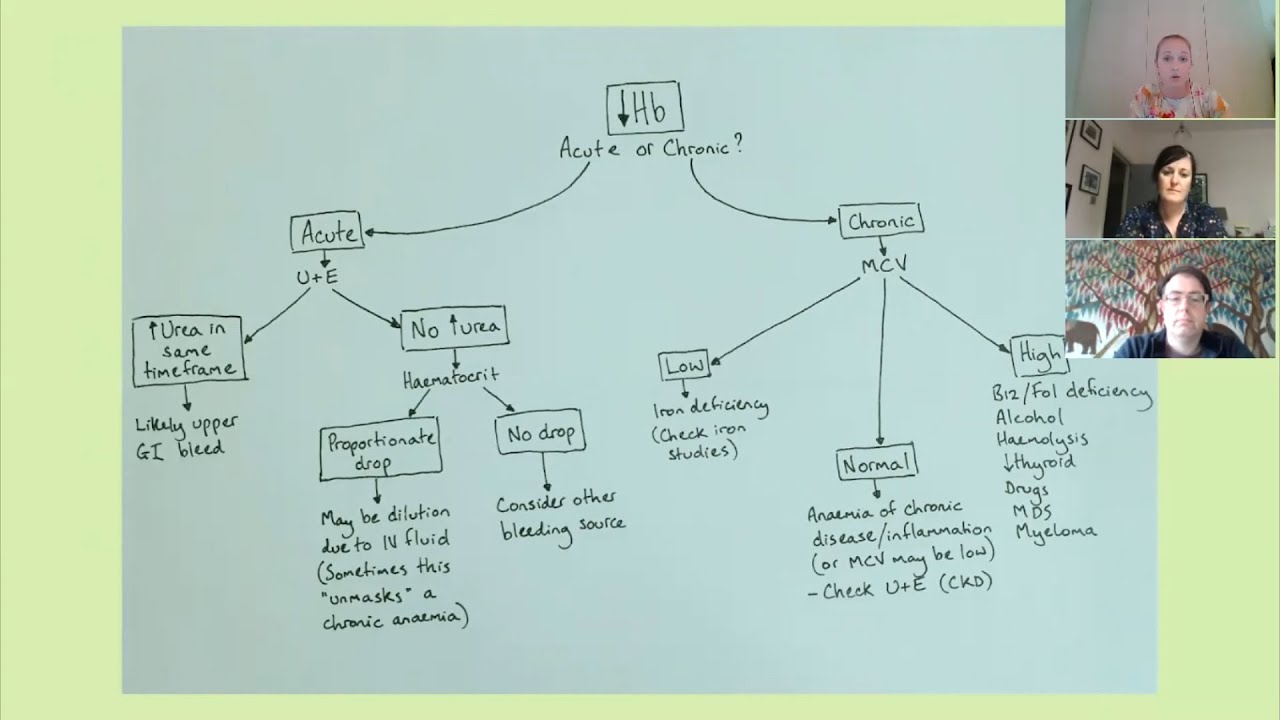 ↓Hb
Acute or Chronic?
Acute
U+E
↑Urea in
same
timeframe
Likely upper
GI bleed
No ↑urea
Haematocrit
Proportionate
drop
May be dilution
due to IV fluid
(Sometimes this
"unmasks" a
chronic anaemia)
No drop
Consider other
bleeding source
Chronic
MCV
Low
Iron deficiency
(Check iron
studies)
Normal
Anaemia of chronic
disease/inflammation
(or MCV may be low)
- Check U+E (CKD)
High
B12/Fol deficiency
Alcohol
Haemolysis
↓thyroid
Drugs
MDS
Myeloma